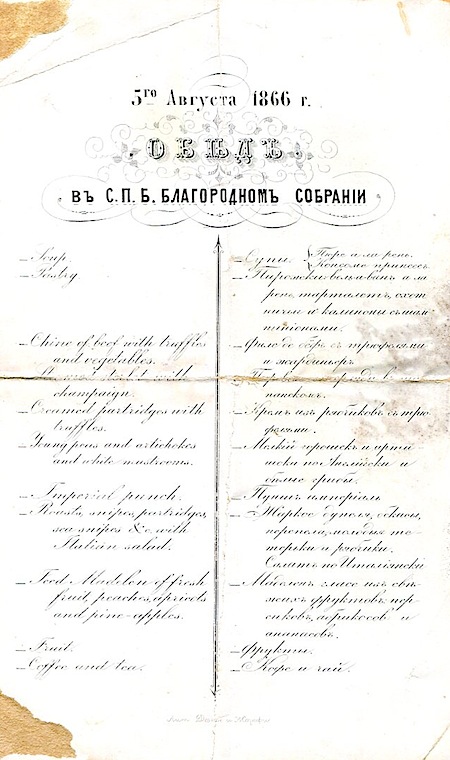 5го Августа 1866 г.
ОБѢДЪ
ВЪ С.П.Б. БЛАГОРОДНОМЪ СОБРАНІИ
Soup
Pastry.
Chine of beef with truffles
and vegetables.
with
champaign.
Creamed partridges with
truffles.
Young peas and artichokes
and white mushrooms.
Imperial punch.
Roasts, snipes, partridges,
sea snipes &c. with
Italian salad.
Iced Madelon of fresh
fruit, peaches, apricots
and pine-apples.
Fruit.
Coffee and tea.
Супы.
Пюре а ла рень.
Консоме принсесъ
Пирожки воль-о-ванъ а ла
рень, тарталетъ, охот
ничьи и
Филе де бефъ съ трюфелями
и жардиньеръ
Кремъ изъ рябчиковъ съ трю
фелями.
Мелкій горошекъ и арти
шоки по Англійски и
Пуншъ имперіаль
Жаркое дупеля, бекасы,
перепела, молодые те
терьки и рябчики.
Салатъ по Итальянски
Мадленъ гласе изъ свѣ
жихъ фруктовъ, пер
сиковъ, абрикосовъ и
ананасовъ.
Фрукты.
Кофе и чай.